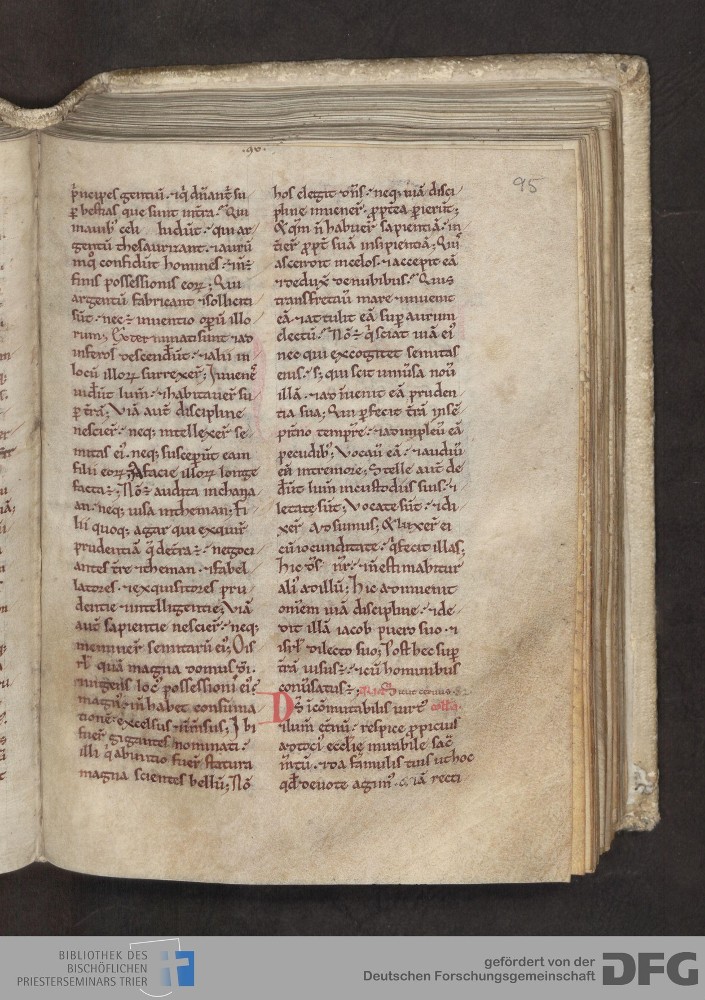 .95.
95
p̾ncipes gentiū. ⁊ q̇ dn̄ant᷑ su
ꝑ bestias que sunt in t̄ra. Qui
in auib' celi ludūt. qui ar
gentū thesaurizant. ⁊ aurū
in q̊ confidūt homines. ⁊ n̄ ē
finis possessionis eoꝝ; Qui
argentū fabricant ⁊ solliciti
sūt. nec ē inuentio oꝑū illo
rum; Exterminati sunt ⁊ ad
inferos descend̄ūt. ⁊ alii in
locū illoꝝ surrexer̄; Iuuenē
uid̄ūt lum̄. ⁊ habitauer̄ su
ꝑ t̄rā; Viā aut̄ discipline
nescier̄. neq; intellexer̄ se
mitas ei'. neq; susceper̄ūt eam
filii eoꝝ; A facie illoꝝ longe
facta ē; Nō ē audita in chana
an. neq; uisa in theman; Fi
lii quoq; agar qui exquir̄
prudentiā q̄ de t̄ra ē. negoci
antes t̄re ⁊ theman. ⁊ fabel
latores. ⁊ exquisitores pru
dentie ⁊ intelligentie; Viā
aut̄ sapientie nescier̄. neq;
meminer̄ semitarū ei'; O is
rl̄ quā magna domus dī.
⁊ ingens loc' possessionis ei';
magn' ⁊ n̄ habet consūma
tionē. excelsus ⁊ īm̄sus; Ibi
fuer̄ gigantes nominati.
illi q̇ ab initio fuer̄ statura
magna scientes bellū; Nō
hos elegit dn̄s. neq; uiā disci
pline inuener̄. ꝓpt̄ea perier̄ūt;
& qm̄ n̄ habuer̄ sapientiā. in
tier̄ ꝓpt̄ suā insipientiā; Quis
ascendit in celos. ⁊ accepit eā
⁊ eduxit de nubibus. Quis
transfretauit mare ⁊ inuenit
eā. ⁊ attulit eā suꝑ aurum
electū. Nō ē q̇ sciat uiā ei'
nec qui excogitet semitas
eius. s; qui scit uniūsa nouit
illā. ⁊ adinuenit eā pruden
tia sua; Qui ꝑfecit t̄rā in et̄
no tempr̄e. ⁊ adimpleuit eā
pecudib'; Vocauit eā. ⁊ audiuit
eū in tremore; Stelle aut̄ de
d̄ūt lum̄ in custodiis suis. ⁊
letate sūt; Vocate sūt. ⁊ di
xer̄ Adsumus; & luxer̄ ei
cū iocunditate. q̇ fecit illas;
Hic ds̄ nr̄. ⁊ n̄ estimabitur
ali' ad illū; Hic adinuenit
om̄em uiā discipline. ⁊ de
dit illā iacob puero suo. ⁊
isrl̄ dilecto suo; Post hec suꝑ
t̄rā uisus ē. ⁊ cū hominibus
conūsatus ē; Sicut ceruus
Ds̄ incōmutabilis uirt' coll̄a.
⁊ lum̄ et̄nū. respice ꝓpicius
ad toci' eccl̄ie mirabile sac̄
m̄tū. ⁊ da famulis tuis ut hoc
qd̄ deuote agim'. &iā recti
BIBLIOTHEK DES
BISCHÖFLICHEN
PRIESTERSEMINARS TRIER
gefördert von der
Deutschen Forschungsgemeinschaft
DFG